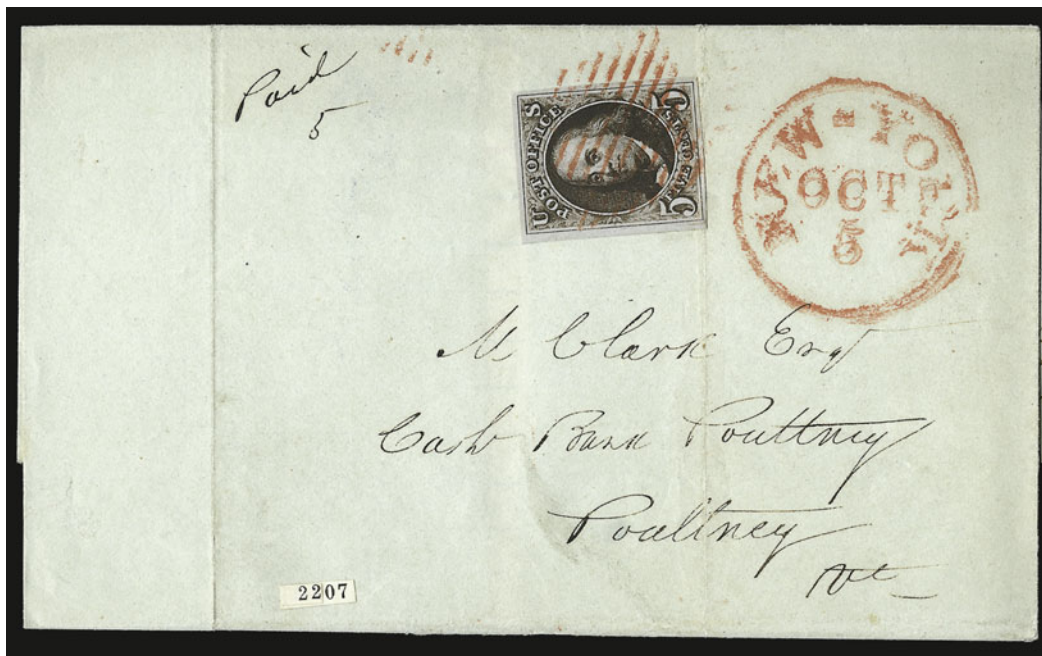 Paid
5
U S
POST OFFICE
FIVE CENTS
5 5
NEW-YORK
OCT
5
M Clark Esqr
Cash Bank Poultney
Poultney
Vt
2207